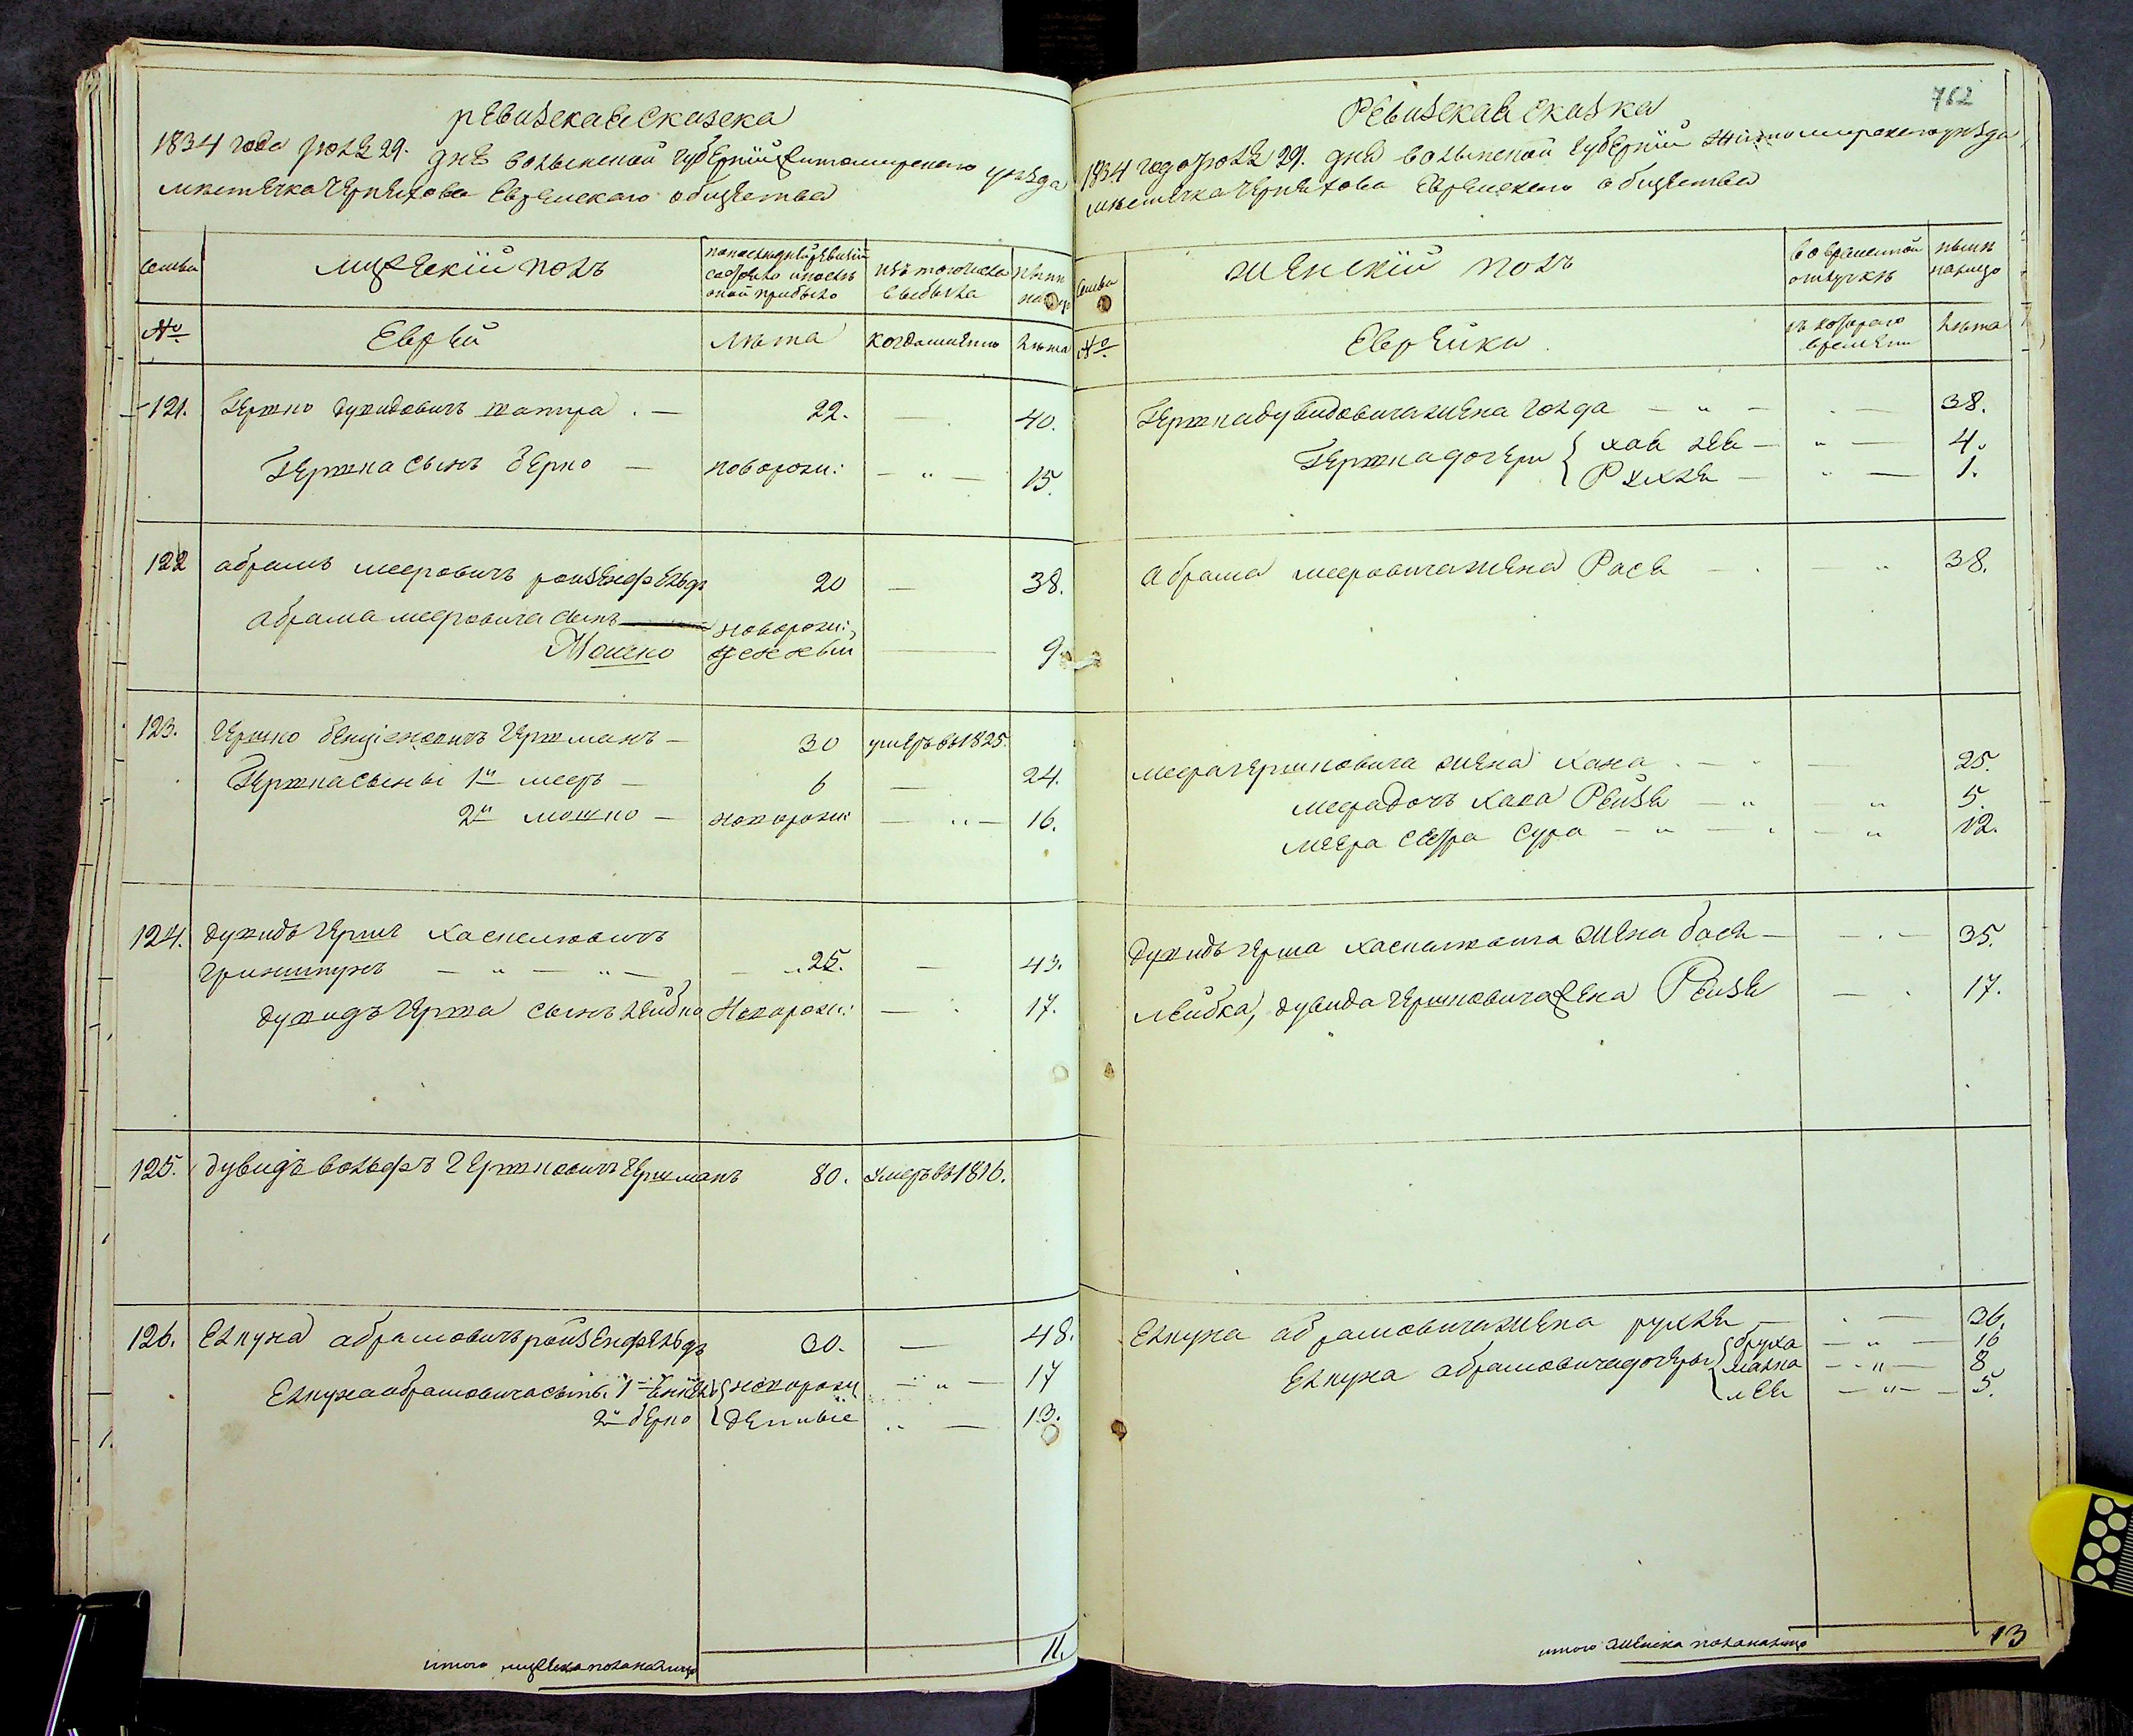 ревизская сказка
1834 года июля 29. дня волынской губернии житомирского уезда
местечка черняхова Еврейского общества
семьи
мужеский полъ
по последней ревизии состояло и после оной прибыло
изъ того числа выбыло
ныне на лицо
№
Еврей
лета
когда именно
лета
121. Гершко дувидовичъ 22. — 40.
Гершка сынъ берко — новорож: — " — 15.
122 абрамъ мееровичъ ройзенфельдъ 20 — 38.
абрама мееровича сынъ новорож:
Мошко денный — 9.
123. Гершко бенционовичъ гершманъ — 30 умеръ въ 1825.
Гершка сыны 1й мееръ — 6 — 24.
2й мошко — новорож: — " — 16.
124. дувидъ герш хаскелювичъ
гринштунъ — " — " — 25. — 43.
дувидъ герша сынъ лейбко Новорож: — 17.
125. дувидъ вольфъ Гершковичъ гершманъ 80. умеръ въ 1816.
126. Елкуна абрамовичъ ройзенфельдъ 30. — 48.
Елкуна абрамовича сыны 1й новорож — " — 17
2й берко денные " — 13.
итого мужеска пола на лицо 11.
762
Ревизская сказка
1834 года июля 29. дня волынской губернии житомирского уезда,
местечка черняхова Еврейского общества
семьи
женский полъ
во временной отлучке
ныне на лицо
№
Еврейки.
съ которого времени
лета
Гершка дувидовича жена голда — " — . — 38.
Гершка дочери { хая лея — " — 4.
Рухля — " — 1.
абрама мееровича жена Рася — . — " 38.
меера гершковича жена Хана . — " — 25.
меера дочь хана Рейзя — " " 5.
меера сестра сура — " — " 12.
дувидъ герша жена бася — — . — 35.
лейбка, дувида гершковича жена Рейзя — . 17.
Елкуна абрамовича жена рухля — . — 36.
Елкуна абрамовича дочеры { бруха — " — 16
малка — " — 8
лея — " — 5.
итого женска пола на лицо 13